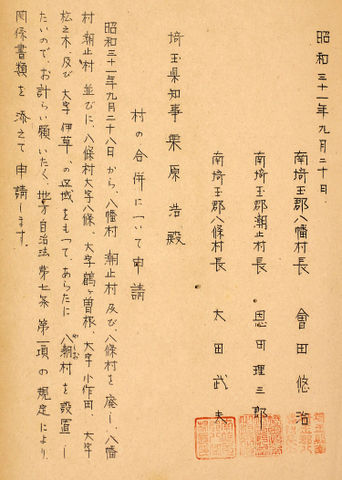 昭和三十一年九月二十日
南埼玉郡八幡村長 會田悠治
南埼玉郡潮止村長 恩田理三郎
南埼玉郡八條村長 大田武夫
埼玉県知事 栗原浩殿
村の合併について申請
昭和三十一年九月二十八日から、八幡村 潮止村 及び、八條村を廃し、八幡
村 潮止村 並びに、八條村大字八條、大字鶴ヶ曽根、大字小作田、大字
松之木、及び 大字伊草、の区域をもつて、あらたに 八潮村を設置し
やしお
たいので、お計らい願いたく、地方自治法第七条 第一項の規定により
関係書類を添えて申請します。